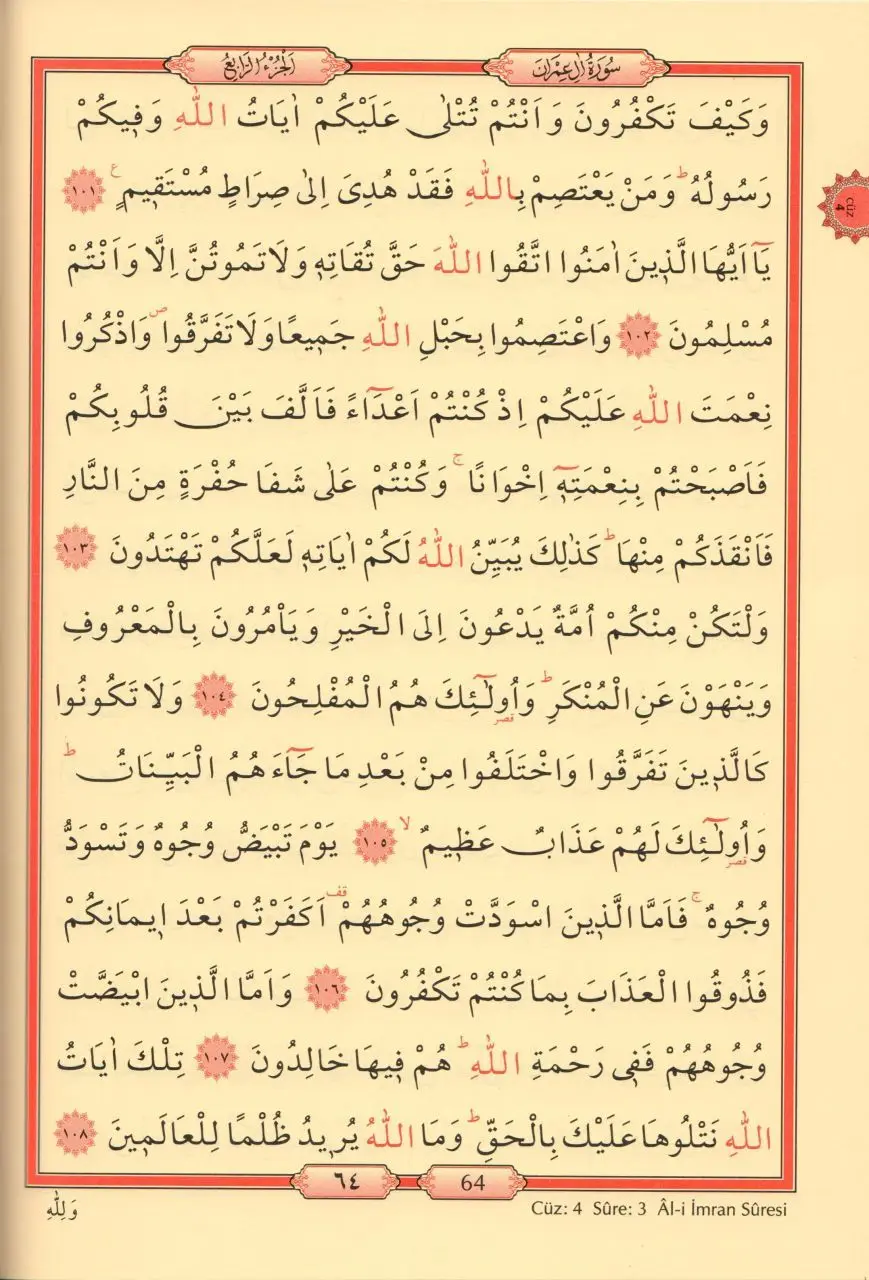 سُورَةُ اٰلِ عِمْرَانَ
اَلْجُزْءُ الرَّابِعُ
وَكَيْفَ تَكْفُرُونَ وَاَنْتُمْ تُتْلٰى عَلَيْكُمْ اٰيَاتُ اللّٰهِ وَف۪يكُمْ
رَسُولُهُ ط وَمَنْ يَعْتَصِمْ بِاللّٰهِ فَقَدْ هُدِىَ اِلٰى صِرَاطٍ مُسْتَق۪يمٍ ع ١٠١
يَٓا اَيُّهَا الَّذ۪ينَ اٰمَنُوا اتَّقُوا اللّٰهَ حَقَّ تُقَاتِه۪ وَلَا تَمُوتُنَّ اِلَّا وَاَنْتُمْ
مُسْلِمُونَ ١٠٢ وَاعْتَصِمُوا بِحَبْلِ اللّٰهِ جَم۪يعًا وَلَا تَفَرَّقُوا ص وَاذْكُرُوا
نِعْمَتَ اللّٰهِ عَلَيْكُمْ اِذْ كُنْتُمْ اَعْدَٓاءً فَاَلَّفَ بَيْنَ قُلُوبِكُمْ
فَاَصْبَحْتُمْ بِنِعْمَتِه۪ٓ اِخْوَانًا ج وَكُنْتُمْ عَلٰى شَفَا حُفْرَةٍ مِنَ النَّارِ
فَاَنْقَذَكُمْ مِنْهَا ط كَذٰلِكَ يُبَيِّنُ اللّٰهُ لَكُمْ اٰيَاتِه۪ لَعَلَّكُمْ تَهْتَدُونَ ١٠٣
وَلْتَكُنْ مِنْكُمْ اُمَّةٌ يَدْعُونَ اِلَى الْخَيْرِ وَيَاْمُرُونَ بِالْمَعْرُوفِ
وَيَنْهَوْنَ عَنِ الْمُنْكَرِ ط وَاُو۬لٰٓئِكَ قصر هُمُ الْمُفْلِحُونَ ١٠٤ وَلَا تَكُونُوا
كَالَّذ۪ينَ تَفَرَّقُوا وَاخْتَلَفُوا مِنْ بَعْدِ مَا جَٓاءَهُمُ الْبَيِّنَاتُ ط
وَاُو۬لٰٓئِكَ قصر لَهُمْ عَذَابٌ عَظ۪يمٌ لا ١٠٥ يَوْمَ تَبْيَضُّ وُجُوهٌ وَتَسْوَدُّ
وُجُوهٌ ج فَاَمَّا الَّذ۪ينَ اسْوَدَّتْ وُجُوهُهُمْ قف اَكَفَرْتُمْ بَعْدَ ا۪يمَانِكُمْ
فَذُوقُوا الْعَذَابَ بِمَا كُنْتُمْ تَكْفُرُونَ ١٠٦ وَاَمَّا الَّذ۪ينَ ابْيَضَّتْ
وُجُوهُهُمْ فَف۪ى رَحْمَةِ اللّٰهِ ط هُمْ ف۪يهَا خَالِدُونَ ١٠٧ تِلْكَ اٰيَاتُ
اللّٰهِ نَتْلُوهَا عَلَيْكَ بِالْحَقِّ ط وَمَا اللّٰهُ يُر۪يدُ ظُلْمًا لِلْعَالَم۪ينَ ١٠٨
cüz 4
64
٦٤
Cüz: 4 Sûre: 3 Âl-i İmran Sûresi
وَلِلّٰهِ